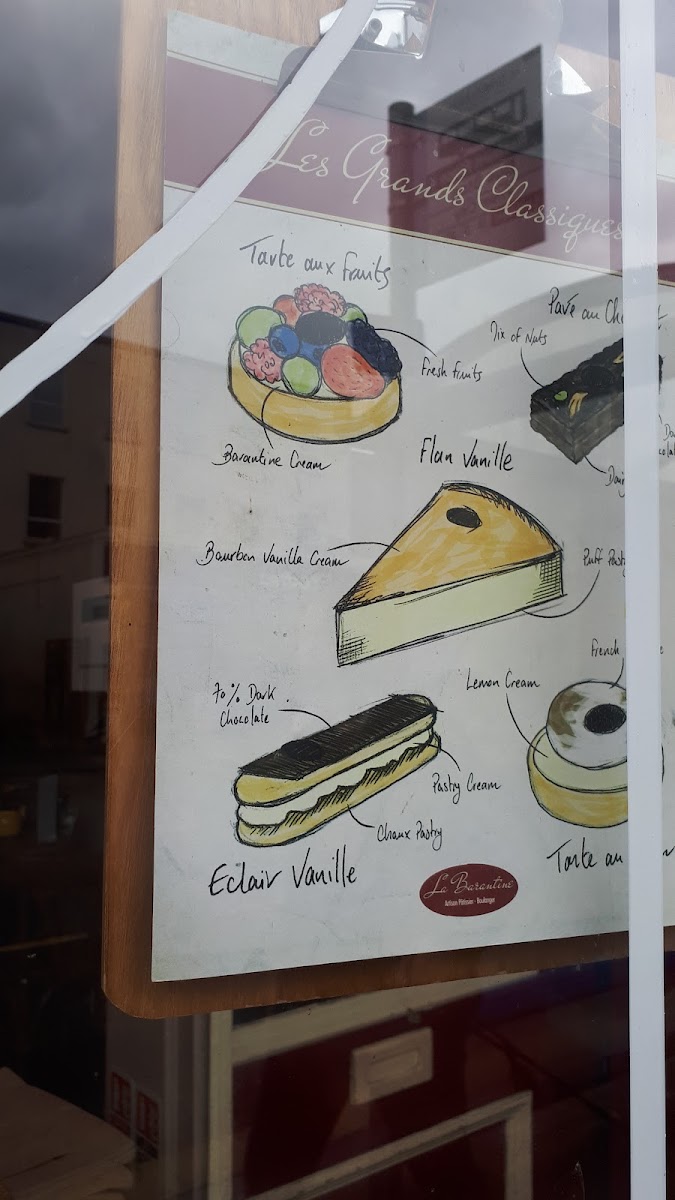 Les Grands Classiques
Tarte aux fruits
Fresh fruits
Barantine Cream
Pavé au
Mix of Nuts
Flan Vanille
Bourbon Vanilla Cream
Puff
70% Dark
Chocolate
Pastry Cream
Choux Pastry
Eclair Vanille
French
Lemon Cream
Tarte au
La Barantine
Artisan Pâtissier - Boulanger